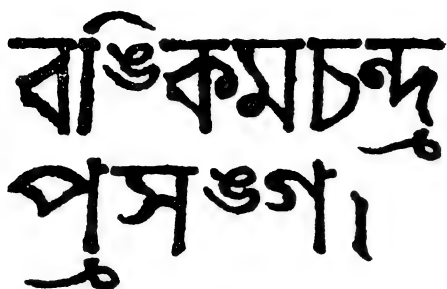 বঙ্কিমচন্দ্র
প্রসঙ্গ।